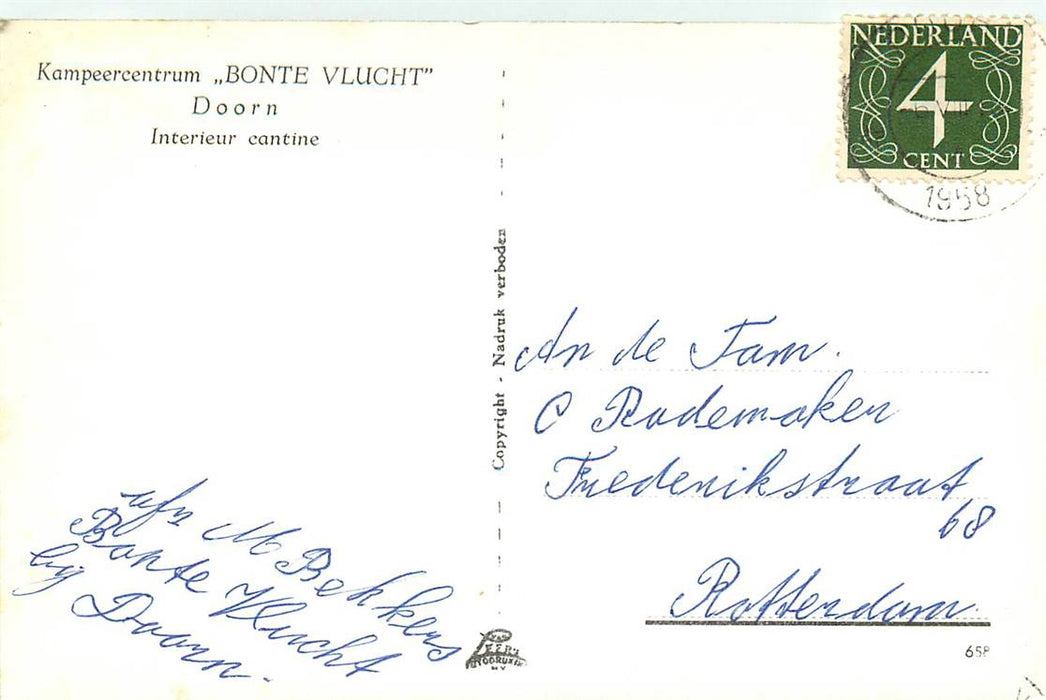 Kampeercentrum „BONTE VLUCHT”
Doorn
Interieur cantine
NEDERLAND
4
CENT
1958
Copyright - Nadruk verboden
An de Fam.
C Rademaker
Frederikstraat
68
Rotterdam
afz M Bekkers
Bonte Vlucht
bij Doorn.
658